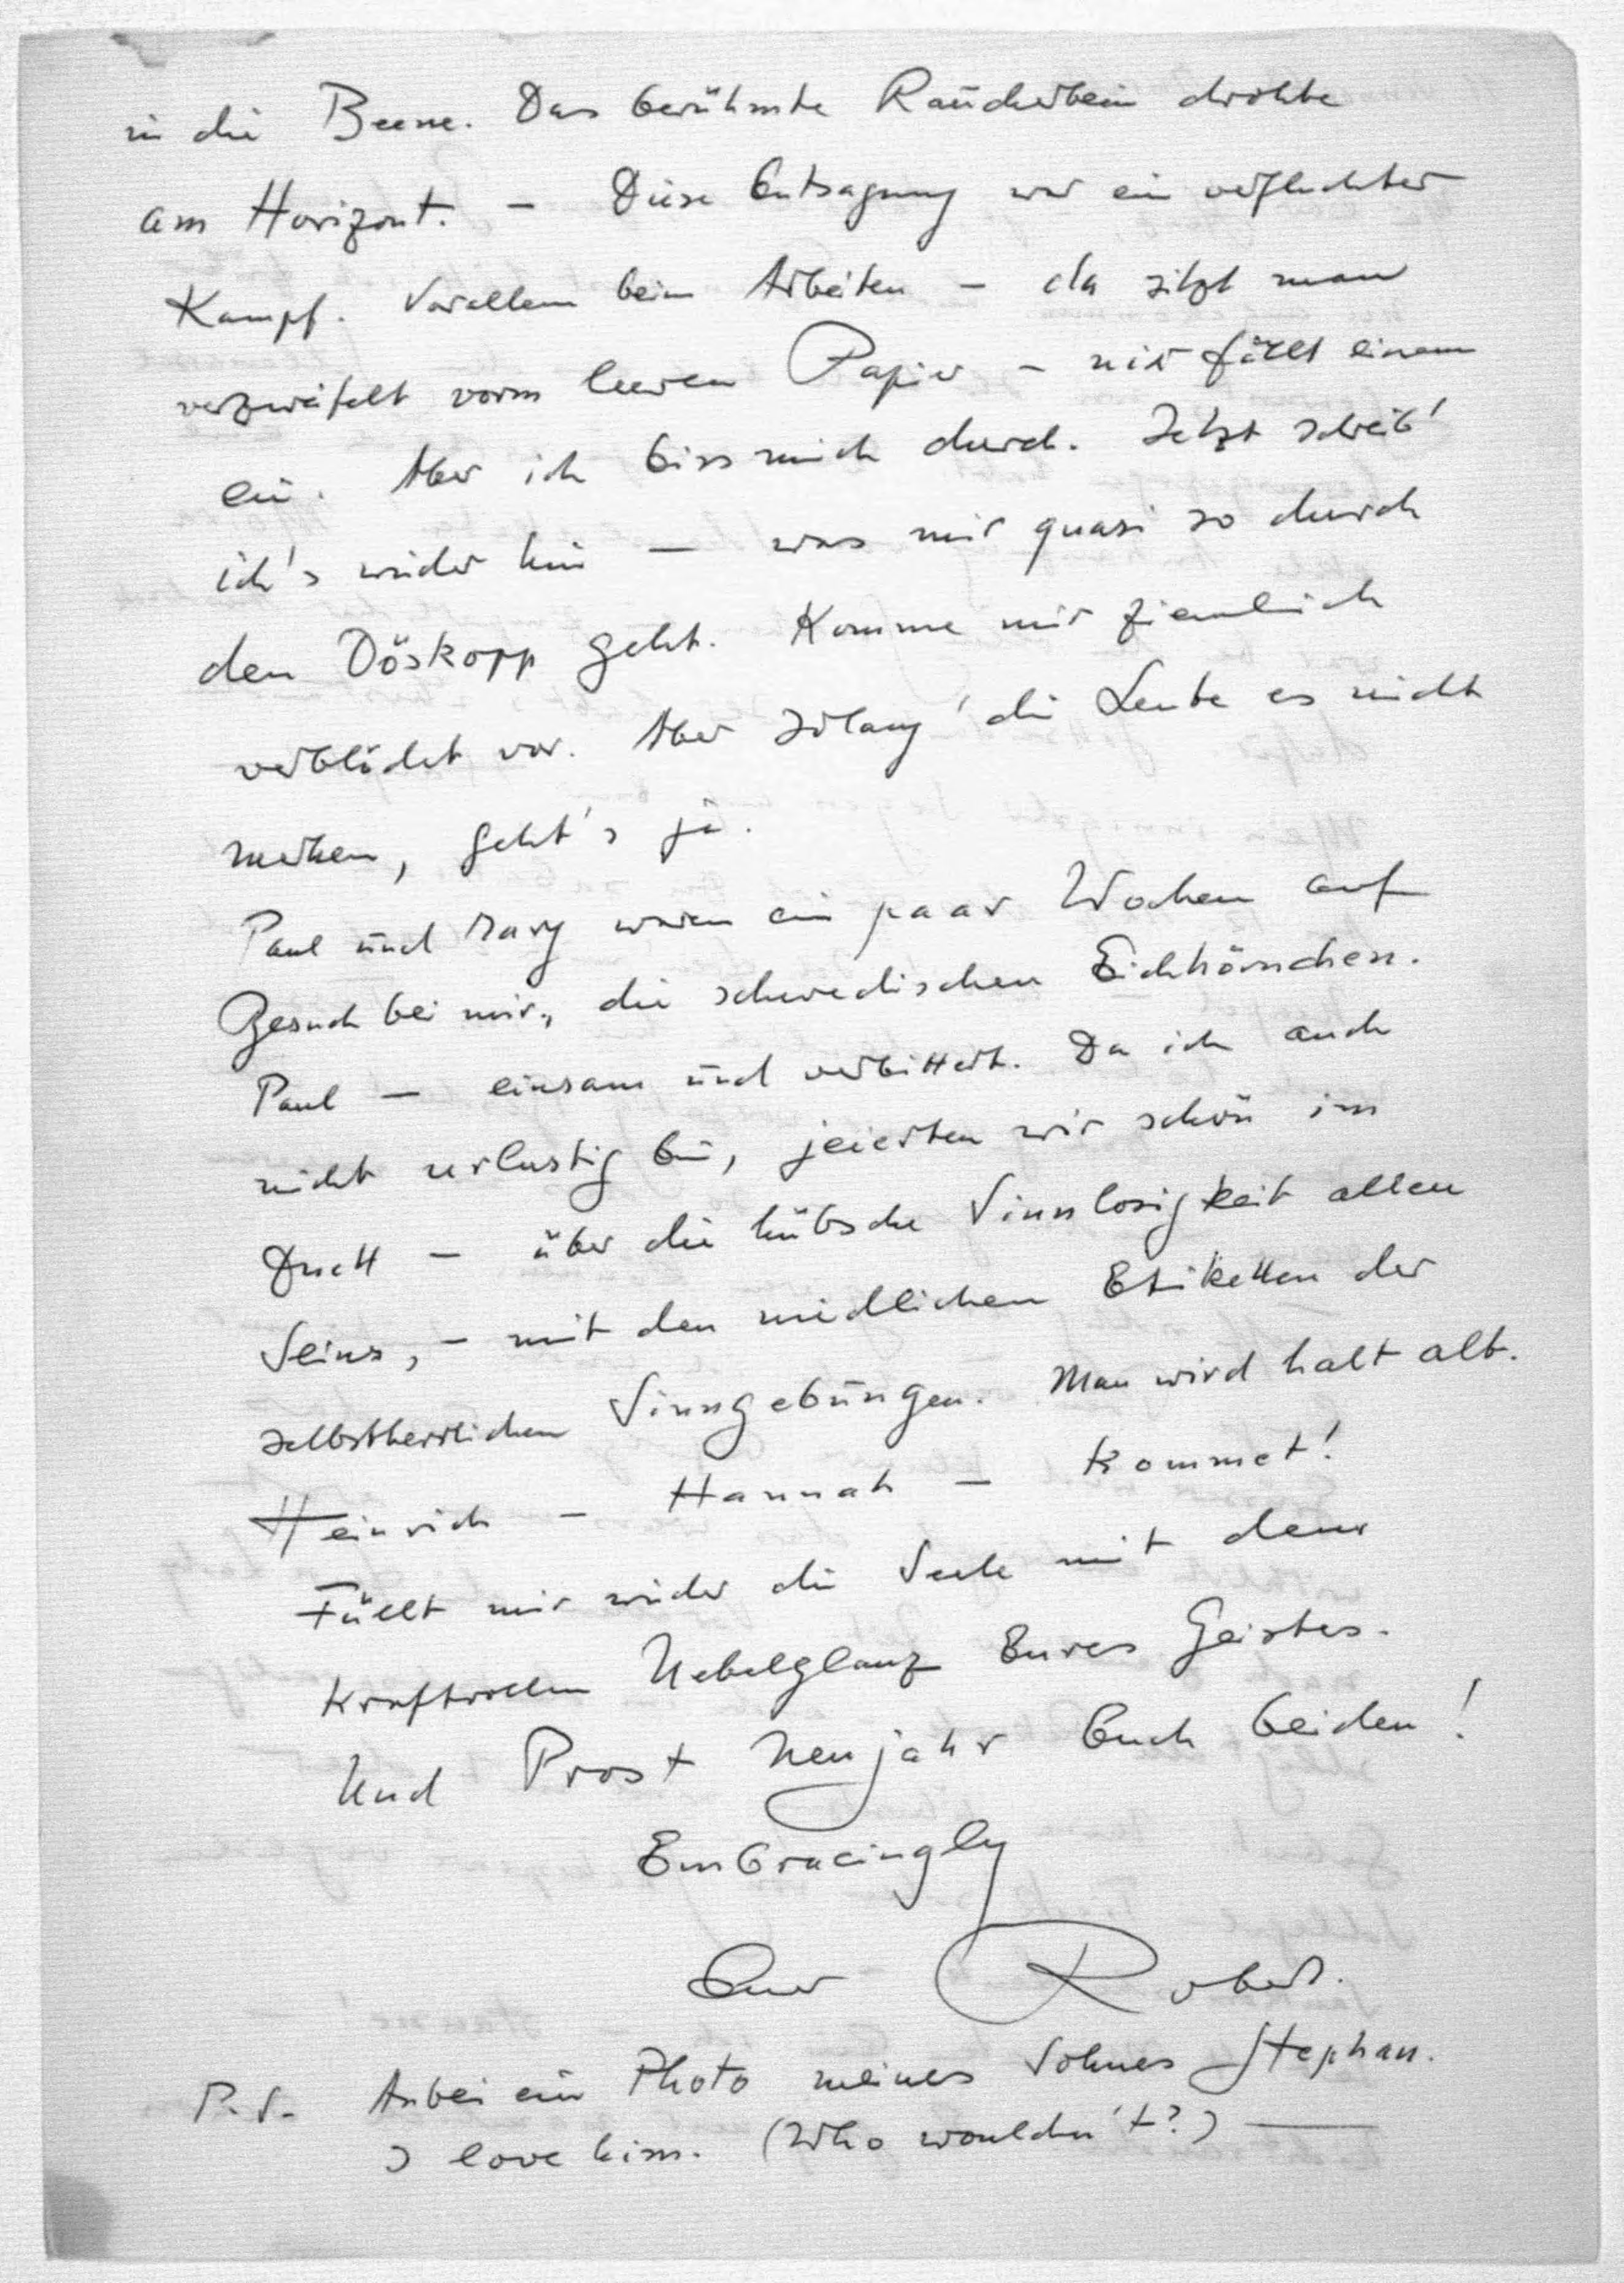 in die Beene. Das berühmte Raucherbein drohte
am Horizont. – Diese Entsagung war ein verfluchter
Kampf. Vorallem beim Arbeiten – da sitzt man
verzweifelt vorm leeren Papier – nix fällt einem
ein. Aber ich biss mich durch. Jetzt schreib'
ich's wieder hin – was mir quasi so durch
den Döskopp geht. Komme mir ziemlich
verblödet vor. Aber solang' die Leute es nicht
merken, geht's ja.
Paul und Mary waren ein paar Wochen auf
Besuch bei mir, die schwedischen Eichhörnchen.
Paul – einsam und verbittert. Da ich auch
nicht urlustig bin, jeierten wir schön im
Duett – über die hübsche Sinnlosigkeit allen
Seins, – mit den niedlichen Etiketten der
selbstherrlichen Sinngebungen. Man wird halt alt.
Heinrich – Hannah – kommet!
Füllt mir wieder die Seele mit dem
kraftvollen Nebelglanz Eures Geistes.
Und Prost Neujahr Euch beiden!
Embracingly
Euer Robert.
P.S. Anbei ein Photo meines Sohnes Stephan.
I love him. (Who wouldn't?) —